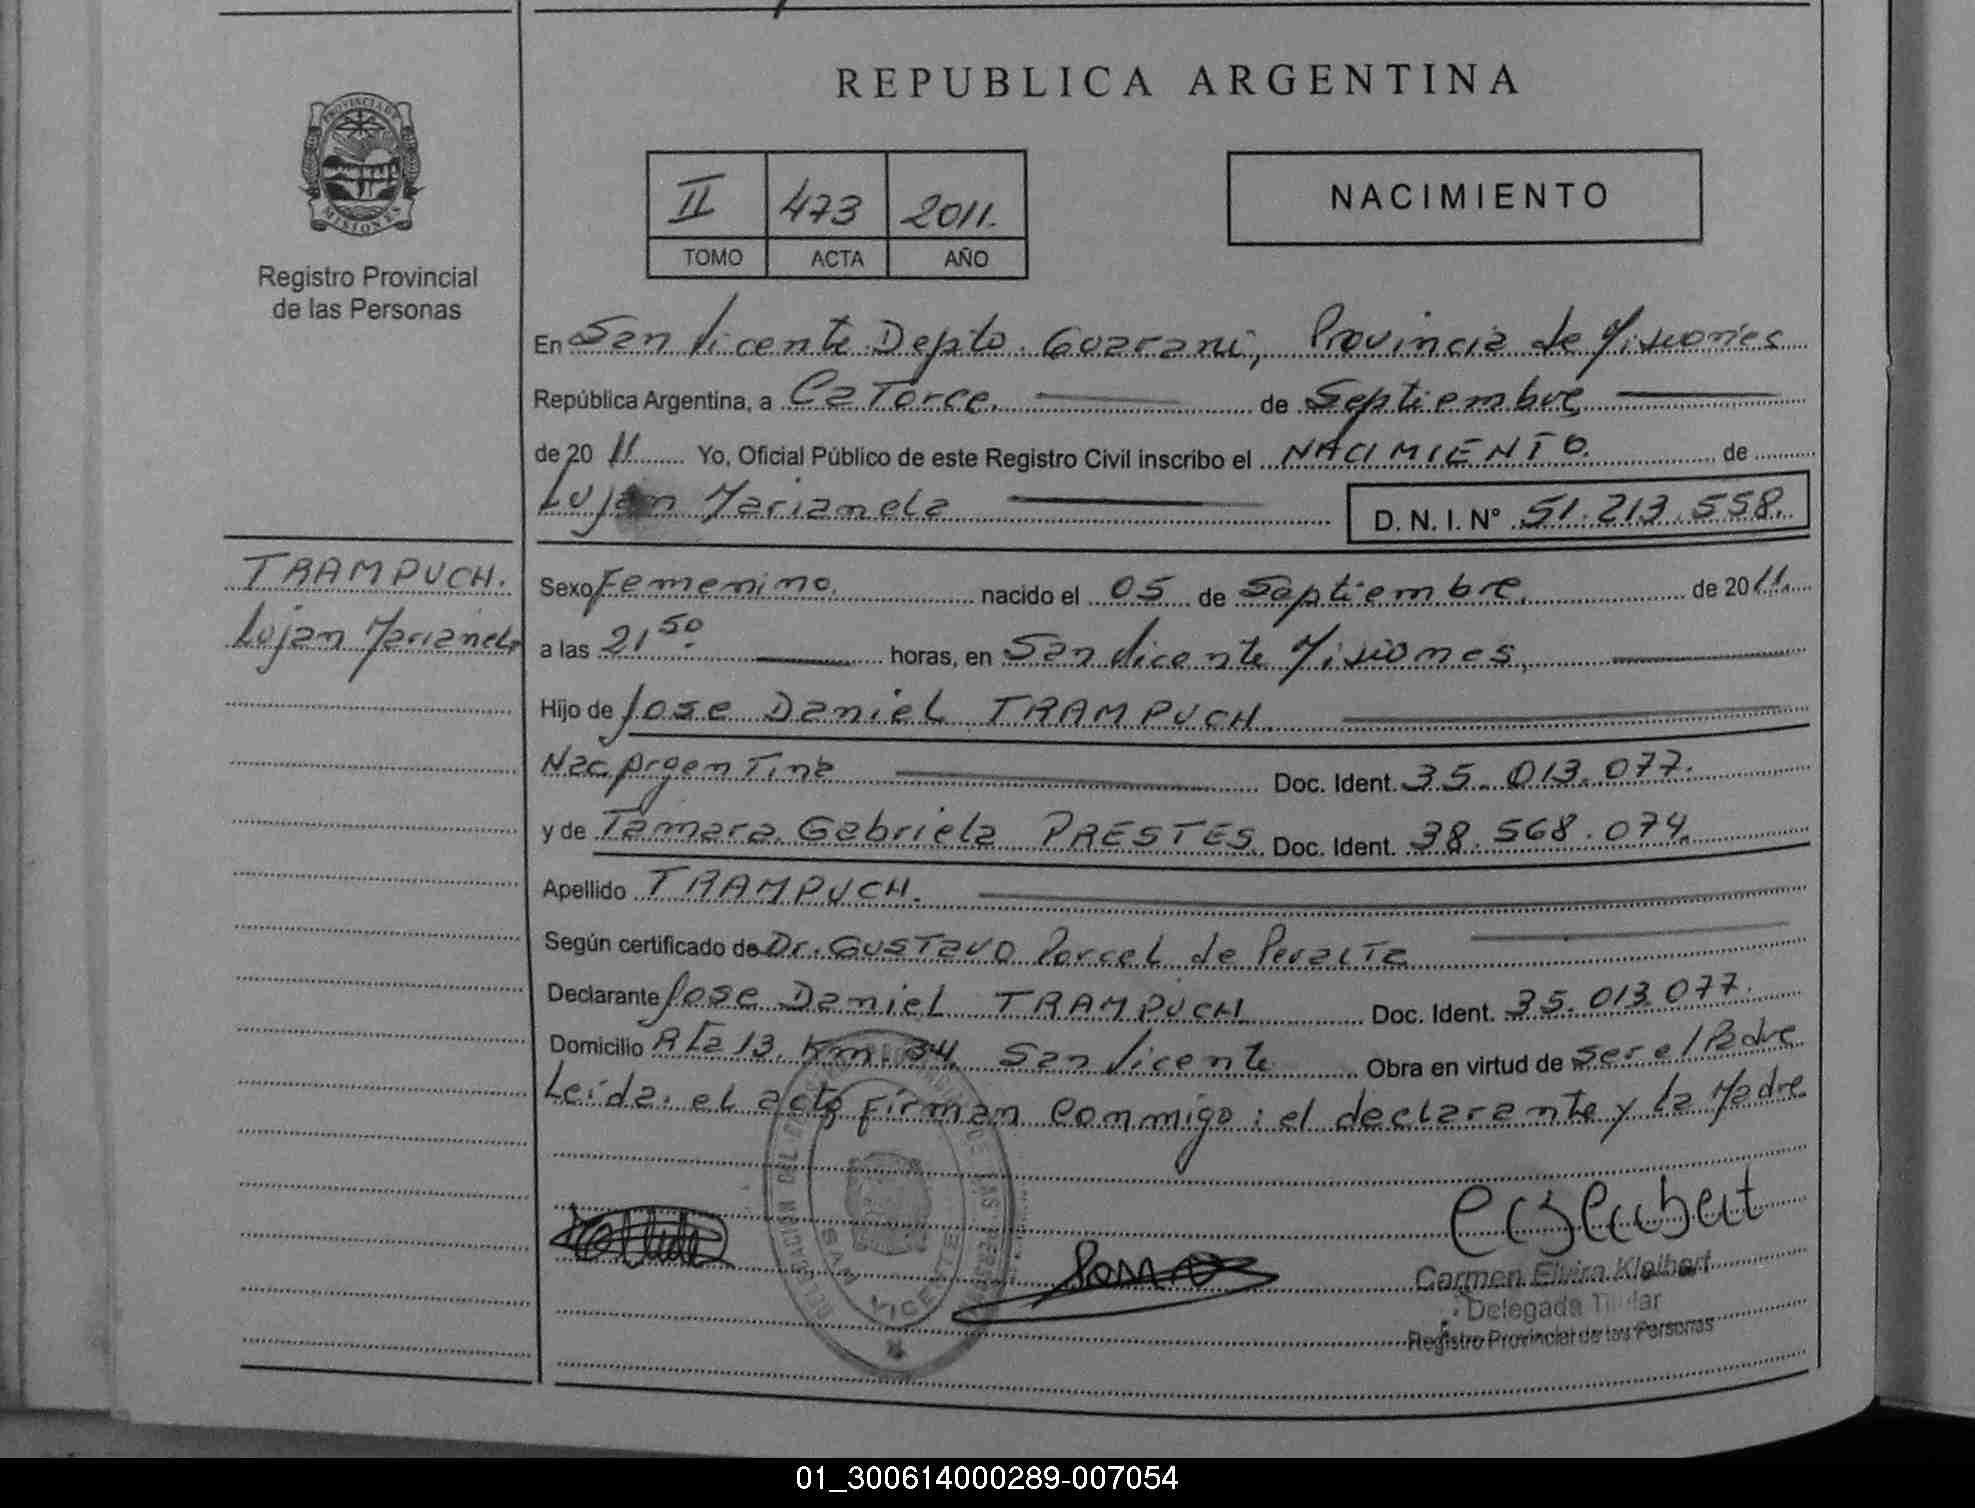 PROVINCIA DE
MISIONES
Registro Provincial
de las Personas
REPUBLICA ARGENTINA
II 473 2011.
TOMO ACTA AÑO
NACIMIENTO
En San Vicente Depto. Guarani, Provincia de Misiones
República Argentina, a Catorce. de Septiembre
de 2011 Yo, Oficial Público de este Registro Civil inscribo el NACIMIENTO. de
Lujan Marianela D. N. I. N° 51.213.558.
TRAMPUCH.
Lujan Marianela
Sexo Femenino. nacido el 05 de Septiembre. de 2011.
a las 21 50 horas, en San Vicente Misiones,
Hijo de Jose Daniel TRAMPUCH.
Nac. Argentina Doc. Ident. 35.013.077.
y de Tamara Gabriela PRESTES. Doc. Ident. 38.568.074.
Apellido TRAMPUCH.
Según certificado de Dr. Gustavo Porcel de Peralta
Declarante Jose Daniel TRAMPUCH Doc. Ident. 35.013.077.
Domicilio Rta 13. Km. 34 San Vicente Obra en virtud de ser el Padre
Leída el acta firman conmigo: el declarante y la Madre
SAN VICENTE
Carmen Elvira Kleibert
Delegada Titular
Registro Provincial de las Personas
01_300614000289-007054